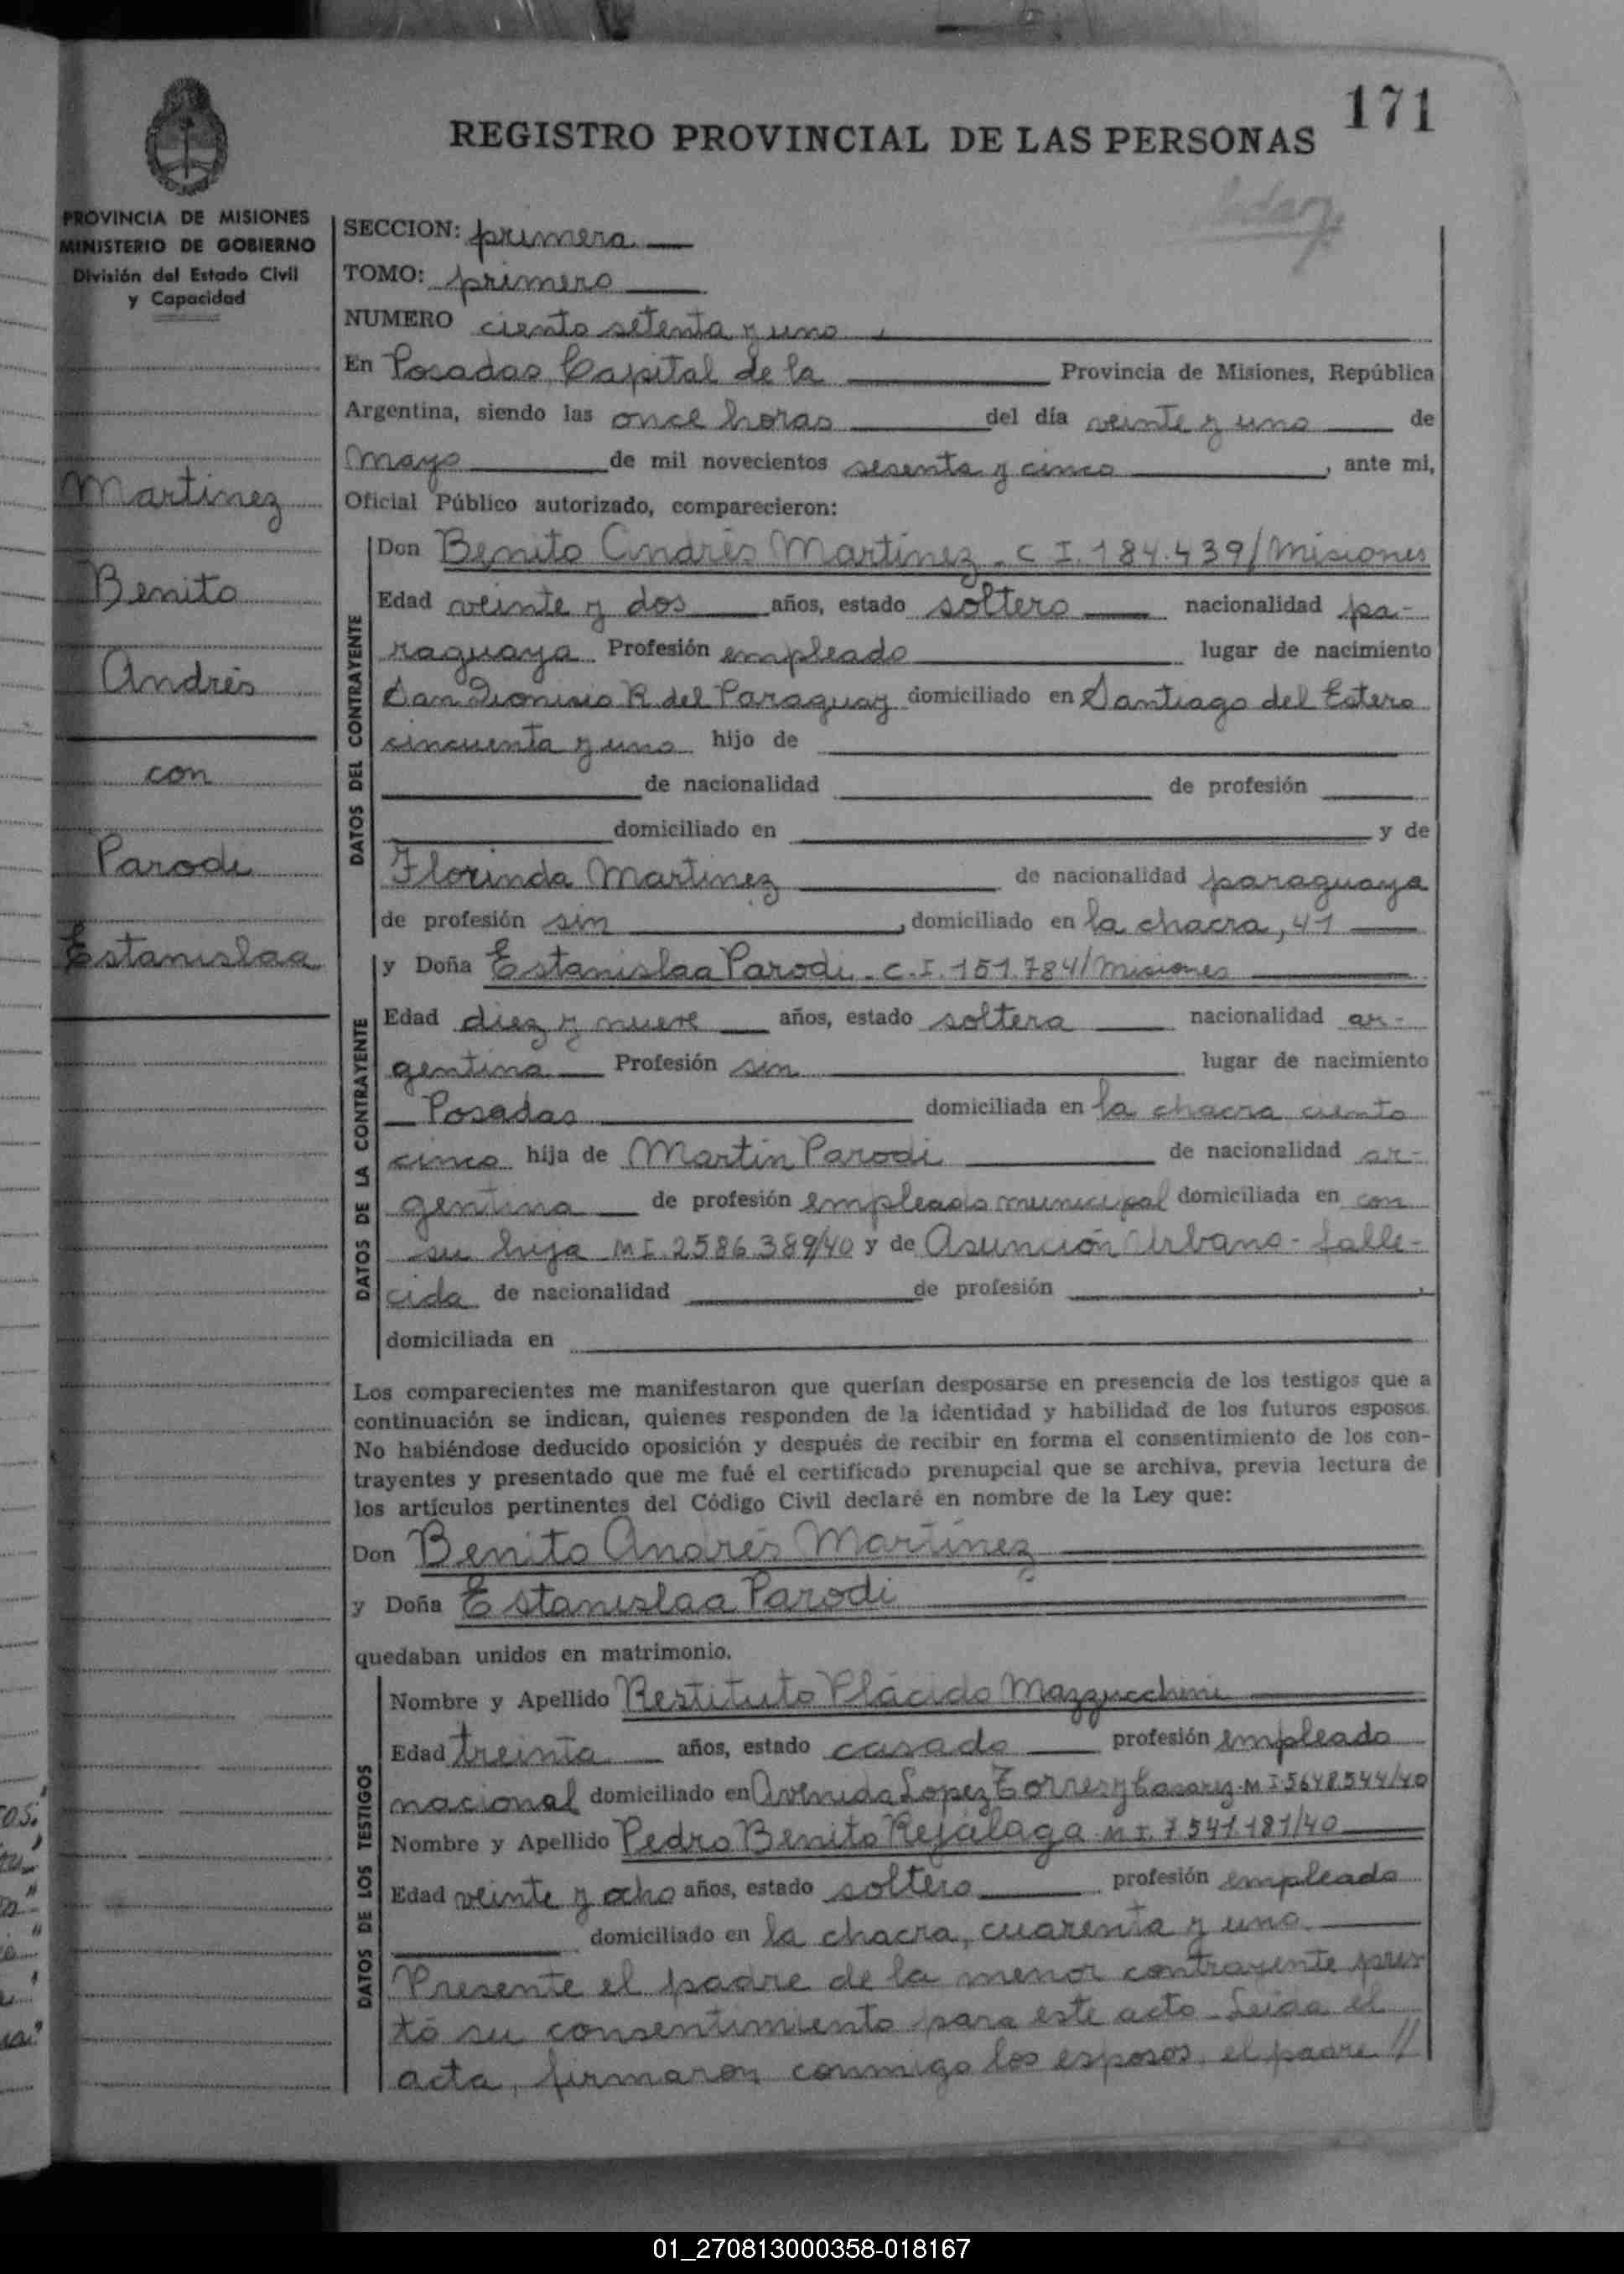 171
REGISTRO PROVINCIAL DE LAS PERSONAS
PROVINCIA DE MISIONES
MINISTERIO DE GOBIERNO
División del Estado Civil
y Capacidad
Martinez
Benito
Andrés
con
Parodi
Estanislaa
SECCION: primera
TOMO: primero
NUMERO ciento setenta y uno
En Posadas Capital de la Provincia de Misiones, República
Argentina, siendo las once horas del día veinte y uno de
mayo de mil novecientos sesenta y cinco, ante mi,
Oficial Público autorizado, comparecieron:
DATOS DEL CONTRAYENTE
Don Benito Andrés Martínez - C I. 184.439/Misiones
Edad veinte y dos años, estado soltero nacionalidad pa-
raguaya Profesión empleado lugar de nacimiento
San Dionisio R. del Paraguay domiciliado en Santiago del Estero
cincuenta y uno hijo de
de nacionalidad de profesión
domiciliado en y de
Florinda Martinez de nacionalidad paraguaya
de profesión sin, domiciliado en la chacra, 41
DATOS DE LA CONTRAYENTE
y Doña Estanislaa Parodi - C.I. 151.784/Misiones
Edad diez y nueve años, estado soltera nacionalidad ar-
gentina Profesión sin lugar de nacimiento
Posadas domiciliada en la chacra ciento
cinco hija de Martín Parodi de nacionalidad ar-
gentina de profesión empleado municipal domiciliada en con
su hija M I. 2586.389/40 y de Asunción Urbano - falle-
cida de nacionalidad de profesión ,
domiciliada en
Los comparecientes me manifestaron que querían desposarse en presencia de los testigos que a
continuación se indican, quienes responden de la identidad y habilidad de los futuros esposos.
No habiéndose deducido oposición y después de recibir en forma el consentimiento de los con-
trayentes y presentado que me fué el certificado prenupcial que se archiva, previa lectura de
los artículos pertinentes del Código Civil declaré en nombre de la Ley que:
Don Benito Andrés Martínez
y Doña Estanislaa Parodi
quedaban unidos en matrimonio.
DATOS DE LOS TESTIGOS
Nombre y Apellido Restituto Plácido Mazzucchini
Edad treinta años, estado casado profesión empleado
nacional domiciliado en Avenida Lopez Torres y Casarez - M I 5648544/40
Nombre y Apellido Pedro Benito Rejálaga M I. 7.541.181/40
Edad veinte y ocho años, estado soltero profesión empleado
domiciliado en la chacra, cuarenta y uno
Presente el padre de la menor contrayente pres
tó su consentimiento para este acto - Leida el
acta, firmaron conmigo los esposos, el padre //
01_270813000358-018167